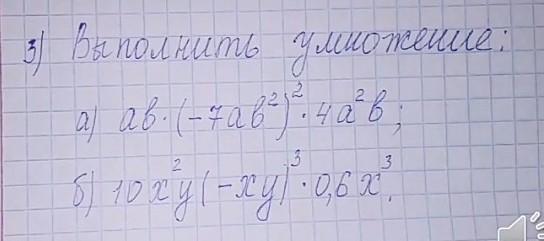 3) Выполнить умножение:
а) ab·(-7ab²)²·4a²b;
б) 10x²y(-xy)³·0,6x³.